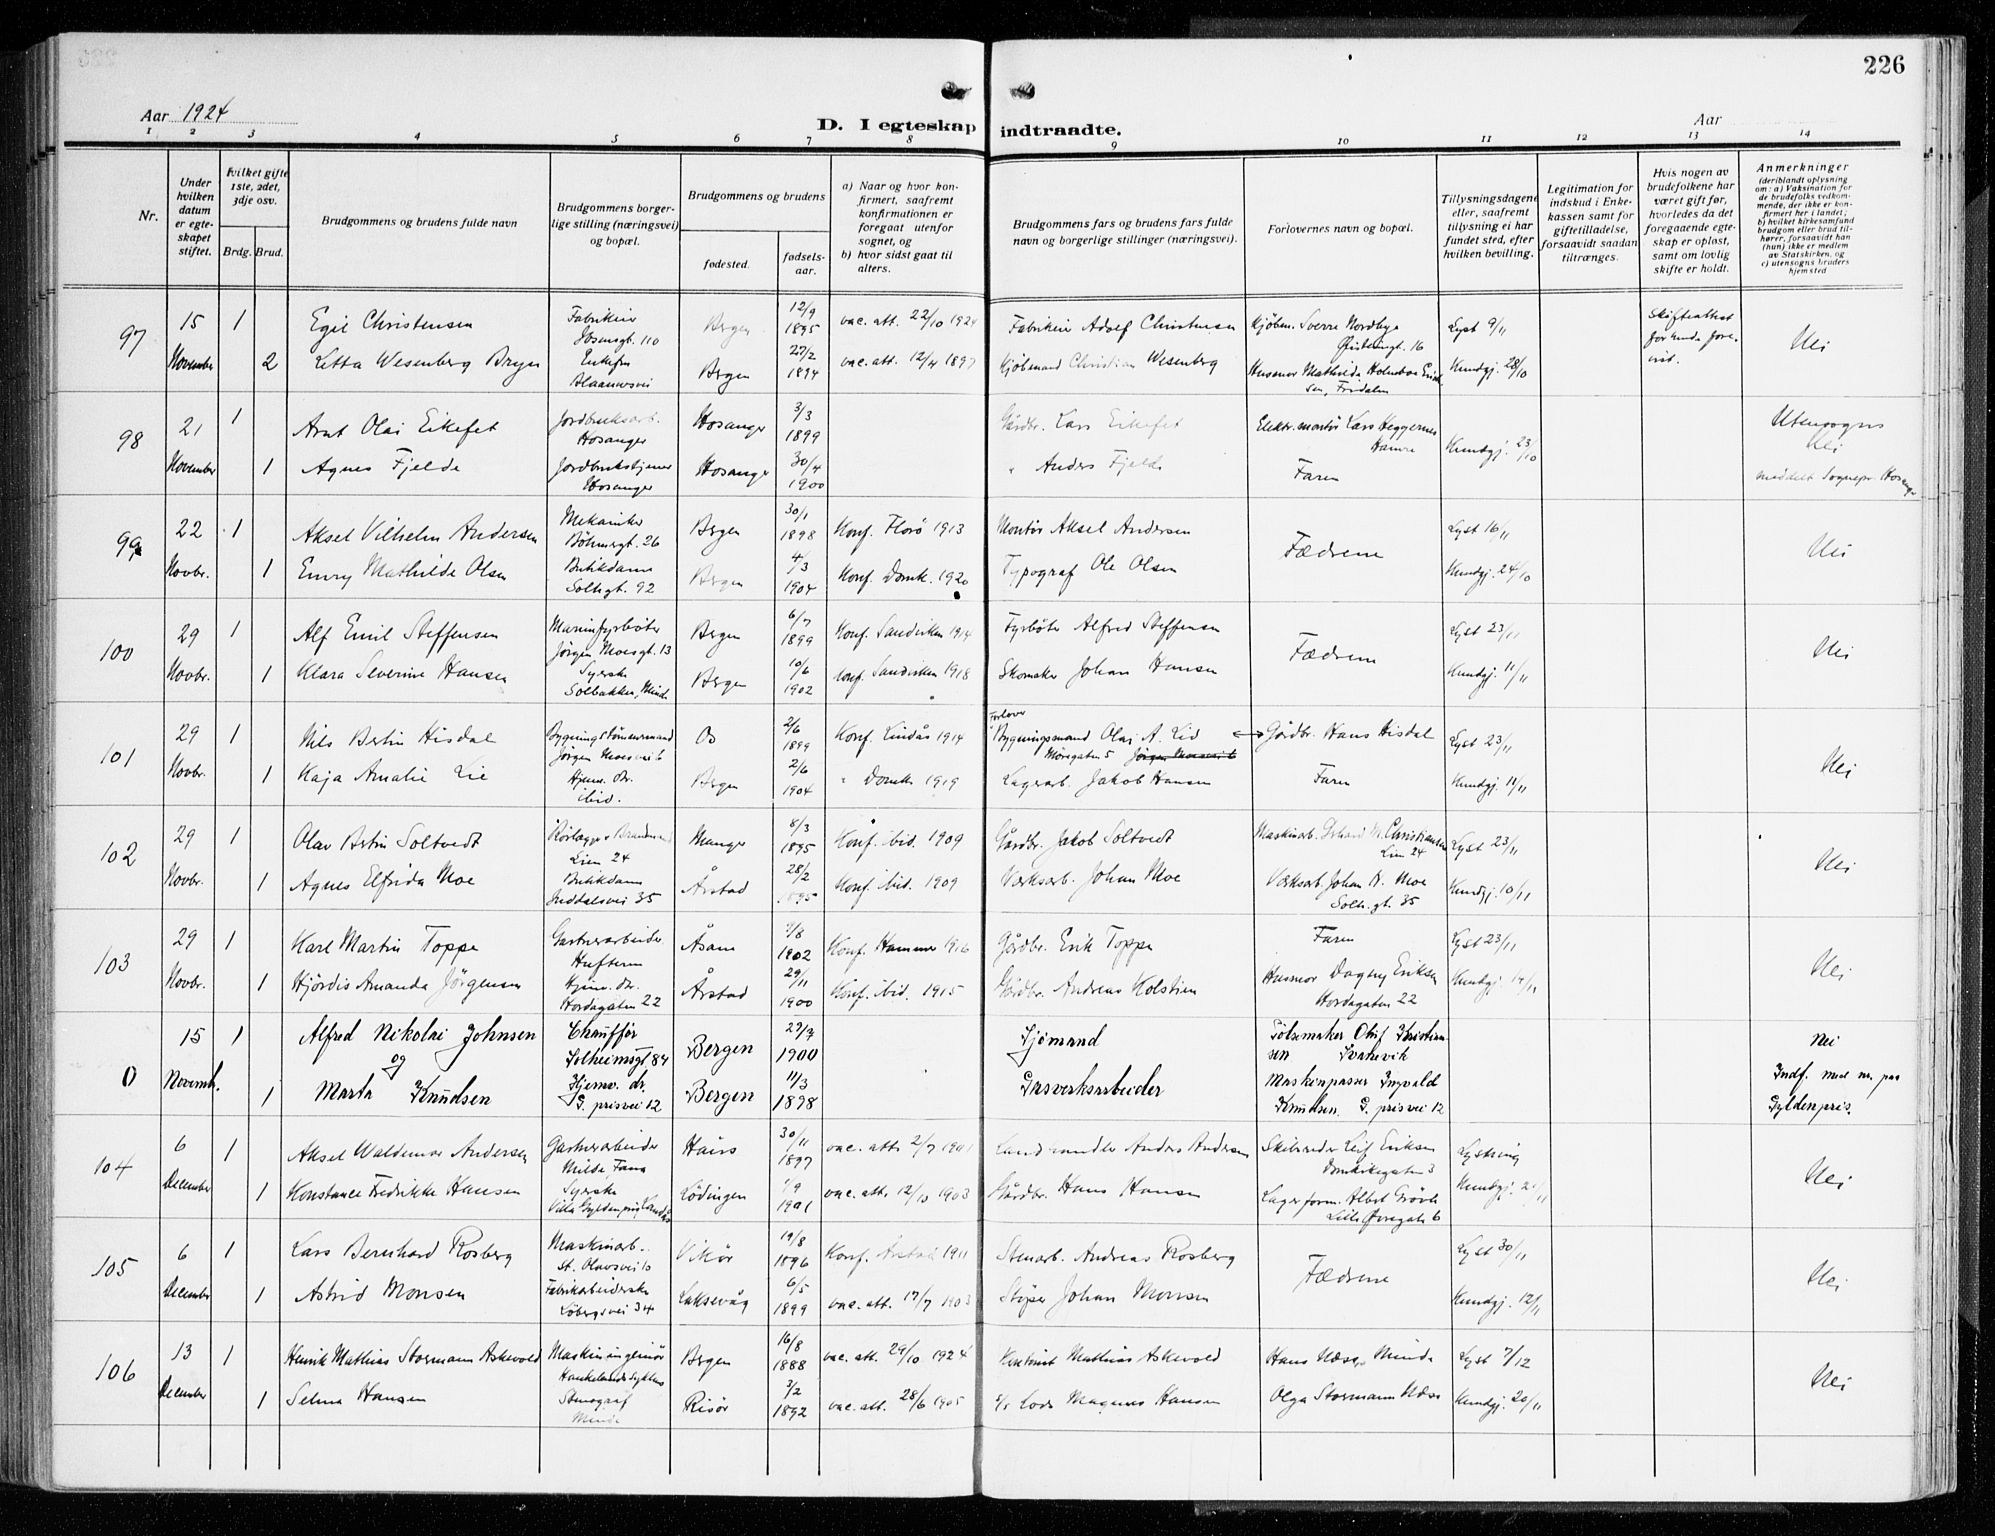 226
Aar 1924
D. I egteskap indtraadte.
Aar
1 2 3 4 5 6 7 8 9 10 11 12 13 14
Nr.
Under hvilken datum er egteskapet stiftet.
Hvilket gifte 1ste, 2det, 3dje osv.
Brdg. Brud.
Brudgommens og brudens fulde navn
Brudgommens borgerlige stilling (næringsvei) og bopæl.
Brudgommens og brudens
fødested.
fødselsaar.
a) Naar og hvor konfirmert, saafremt konfirmationen er foregaat utenfor sognet, og
b) hvor sidst gaat til alters.
Brudgommens fars og brudens fars fulde navn og borgerlige stillinger (næringsvei).
Forlovernes navn og bopæl.
Tillysningsdagene eller, saafremt tillysning ei har fundet sted, efter hvilken bevilling.
Legitimation for indskud i Enkekassen samt for giftetilladelse, forsaavidt saadan tiltrænges.
Hvis nogen av brudefolkene har været gift før, hvorledes da det foregaaende egteskap er opløst, samt om lovlig skifte er holdt.
Anmerkninger
(deriblandt oplysning om: a) Vaksination for de brudefolks vedkommende, der ikke er konfirmert her i landet; b) hvilket kirkesamfund brudgom eller brud tilhører, forsaavidt han (hun) ikke er medlem av Statskirken, og c) utensogns bruders hjemsted
97 15 1 Egil Christensen Fabrikeier Bergen 12/9 1895 vac. att. 22/10 1924 Fabrikeier Adolf Christensen Kjøbm. Sverre Nordbye 16 Lyst 9/11 Skifteattest Nei
November 2 Letta Wesenberg Bryn Enkefru Bergen 22/2 1894 vac. att. 12/4 1897 Kjøbmand Christian Wesenberg Husmor Mathilde Holmboe Fridalen Kundgj. 28/10
98 21 1 Arnt Olai Eikefet Jordbruksarb. Hosanger Hosanger 3/3 1899 Gårdbr. Lars Eikefet Elektr. montør Lars Heggernes Hamre Kundgj. 23/10 Utensogns Nei
November 1 Agnes Fjelde Hosanger Hosanger 30/4 1900 " Anders Fjelde Faren meddelt Sognepr. Hosanger
99 22 1 Aksel Vilhelm Andersen Mekaniker Bøhmergt. 26 Bergen 30/1 1898 Konf. Florø 1913 Montør Aksel Andersen Fædrene Lyst 16/11 Nei
Novbr. 1 Emry Mathilde Olsen Butikdame Solhgt. 92 Bergen 4/3 1904 Konf. Domk. 1920 Typograf Ole Olsen Kundgj. 24/10
100 29 1 Alf Emil Steffensen Marinefyrbøter Jørgen Moesgt. 13 Bergen 6/7 1899 Konf. Sandviken 1914 Fyrbøter Alfred Steffensen Fædrene Lyst 23/11 Nei
Novbr. 1 Klara Severine Hansen Syerske Solbakken, Minde Bergen 10/6 1902 Konf. Sandviken 1918 Skomaker Johan Hansen Kundgj. 11/11
101 29 1 Nils Bertin Hisdal Bygningstømmermand Jørgen Moesvei 6 Os 2/6 1899 Konf. Lindås 1914 Forlover Bygningsmand Olai A. Lid Møregaten 5 Jørgen Moesvei 6 Gårdbr. Hans Hisdal Lyst 23/11 Nei
Novbr. 1 Kaja Amalie Lie Hjemv. dr. ibid. Bergen 2/6 1904 " Domk. 1919 Lagerarb. Jakob Hansen Faren Kundgj. 11/11
102 29 1 Olav Bertin Soltvedt Rørlægger Brandmand Lien 24 Manger 8/3 1895 Konf. ibid. 1909 Gårdbr. Jakob Soltvedt Maskinarb. Gerhard M. Christiansen Lien 24 Lyst 23/11 Nei
Novbr. 1 Agnes Elfrida Moe Butikdame Inddalsvei 35 Årstad 28/2 1895 Konf. ibid. 1909 Værksarb. Johan Moe Værksarb. Johan A. Moe Solh. gt. 35 Kundgj. 10/11
103 29 1 Karl Martin Toppe Gartnerarbeider Hufteren Åsane 9/8 1902 Konf. Hammer 1916 Gårdbr. Erik Toppe Faren Lyst 23/11 Nei
Novbr. 1 Hjørdis Amanda Jørgensen Hjemv. dr. Hordagaten 22 Årstad 29/11 1900 Konf. ibid. 1915 Gårdbr. Andreas Holstien Husmor Dagny Eriksen Hordagaten 22 Kundgj. 14/11
0 15 1 Alfred Nikolai Johnsen Chauffør Solheimsgt. 84 Bergen 27/7 1900 Sjømand Pølsemaker Oluf Kristiansen Svanevik Nei
og
Novemb. 1 Marta Knudsen Hjemv. dr. G. prisvei 12 Bergen 11/3 1898 Gasverksarbeider Maskinpasser Ingvald Knudsen. G. prisvei 12 Indf. med nr. paa Gyldenpris.
104 6 1 Aksel Waldemar Andersen Gartnerarbeider Milde Fana 30/11 1897 vac. att. 2/7 1901 Landhandler Anders Andersen Skibsreder Leif Eriksen Domkirkegaten 3 Lysning Nei
December 1 Konstance Fredrikke Hansen Syerske Lødingen 1/9 1901 vac. att. 12/10 1903 Gårdbr. Hans Hansen Lagerform. Albert Grøvle Lille Øvregate 6 Kundgj.
105 6 1 Lars Bernhard Rosberg Maskinarb. St. Olavsvei 10 Vikør 19/8 1896 Konf. Årstad 1911 Stenarb. Andreas Rosberg Fædrene Lyst 30/11 Nei
December 1 Astrid Monsen Fabrikarbeiderske Løbergsvei 34 Laksevåg 6/5 1899 vac. att. 17/7 1903 Støper Johan Monsen Kundgj. 12/11
106 13 1 Henrik Mathias Stormann Askevold Maskiningeniør Bergen 16/8 1888 vac. att. 29/10 1924 Mathias Askevold Hans Næss, Minde Lyst 7/12 Nei
December 1 Selma Hansen Stenograf Minde Risør 3/2 1892 vac. att. 28/6 1905 Lods Magnus Hansen Olga Stormann Næss Kundgj. 20/11